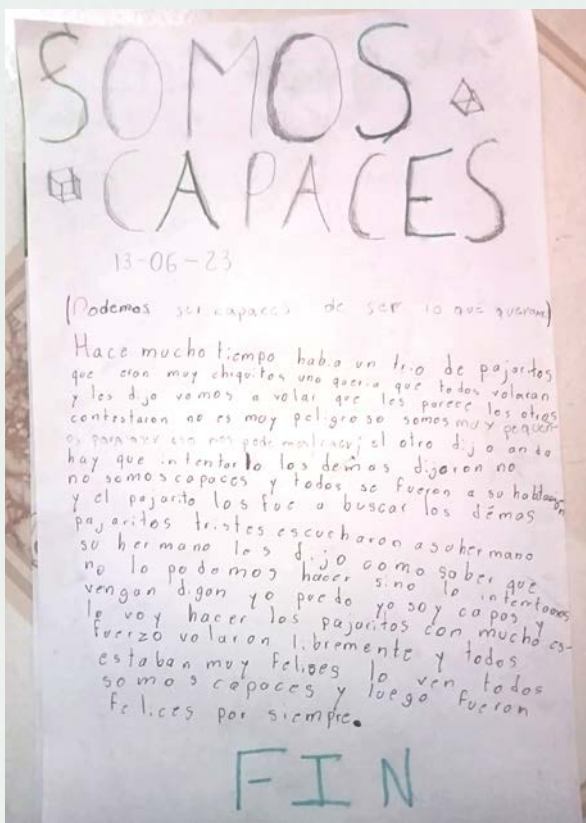 SOMOS
CAPACES
13-06-23
(Podemos ser capaces de ser lo que queramos)
Hace mucho tiempo habia un trio de pajaritos
que eron muy chiquitos uno queria que todos volaran
y les dijo vamos a volar que les parece los otros
contestaron no es muy peligroso somos muy pequeñ-
os para hacer eso nos podemos caer; el otro dijo
hay que intentarlo los demas dijeron no
no somos capaces y todos se fueron a su habitación
y el pajarito los fue a buscar los démas
pajaritos tristes escucharon a su hermano
su hermano les dijo como saber que
no lo podemos hacer sino lo intentamos
vengan digan yo puedo yo soy capas y
lo voy hacer los pajaritos con mucho es-
fuerzo volaron libremente y todos
estaban muy felises lo ven todos
somos capaces y luego fueron
felices por siempre.
FIN